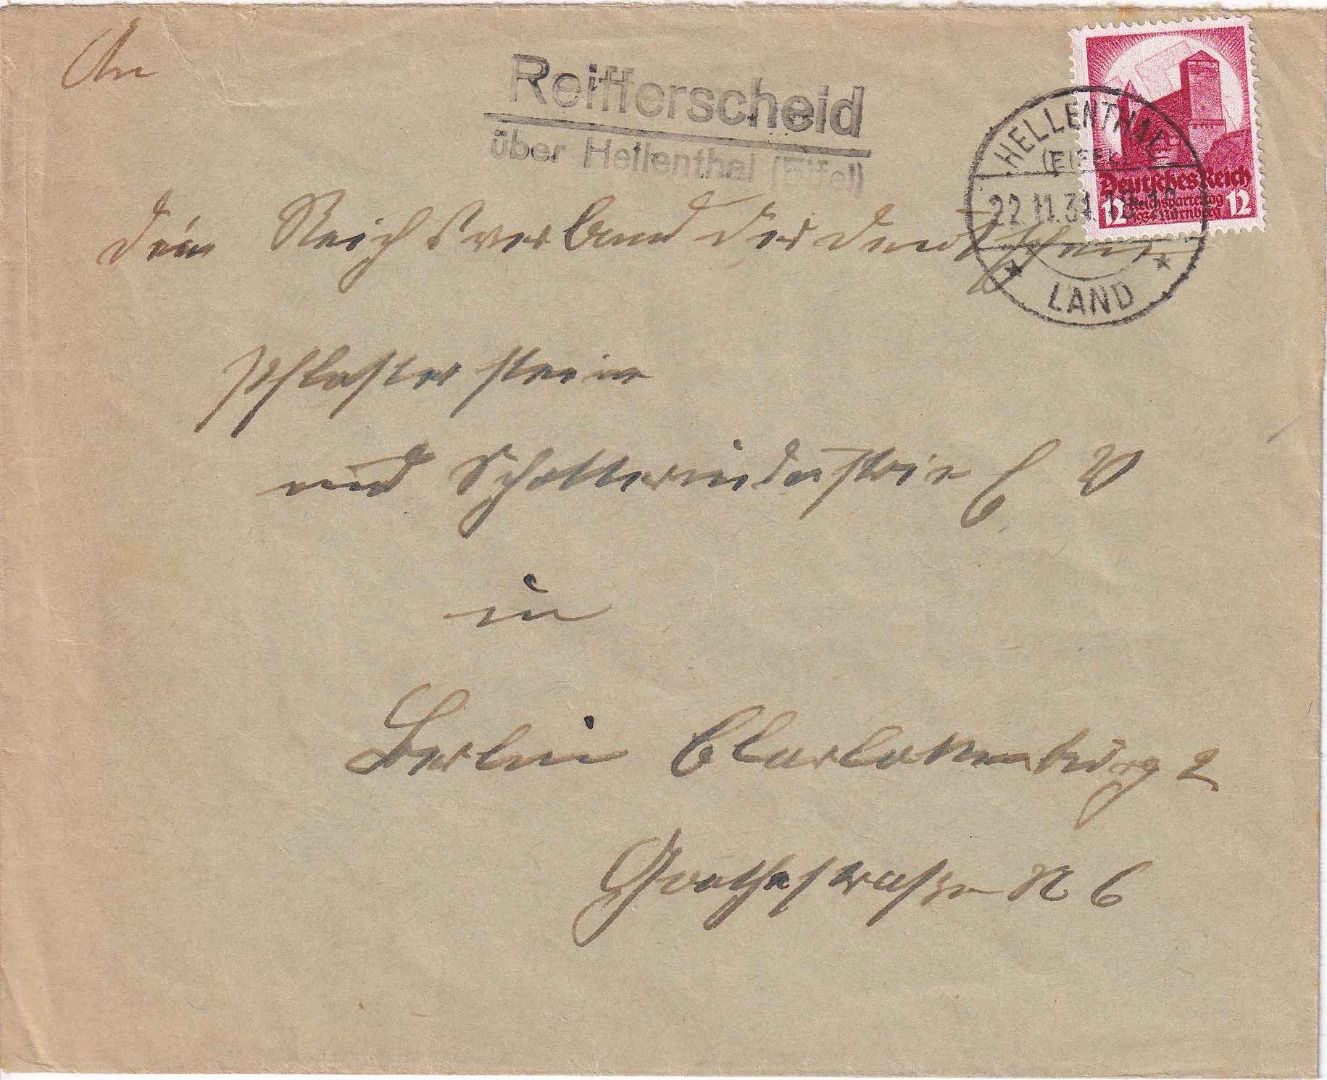 An
Reifferscheid
über Hellenthal (Eifel)
HELLENTHAL
(EIFEL)
22.11.34
LAND
Deutsches Reich
12 Reichsparteitag 12
1934 Nürnberg
dem Reichsverband der deutschen
Pflastersteine
und Schotterindustrie E V
in
Berlin Charlottenburg 2
Goethestraße N 6